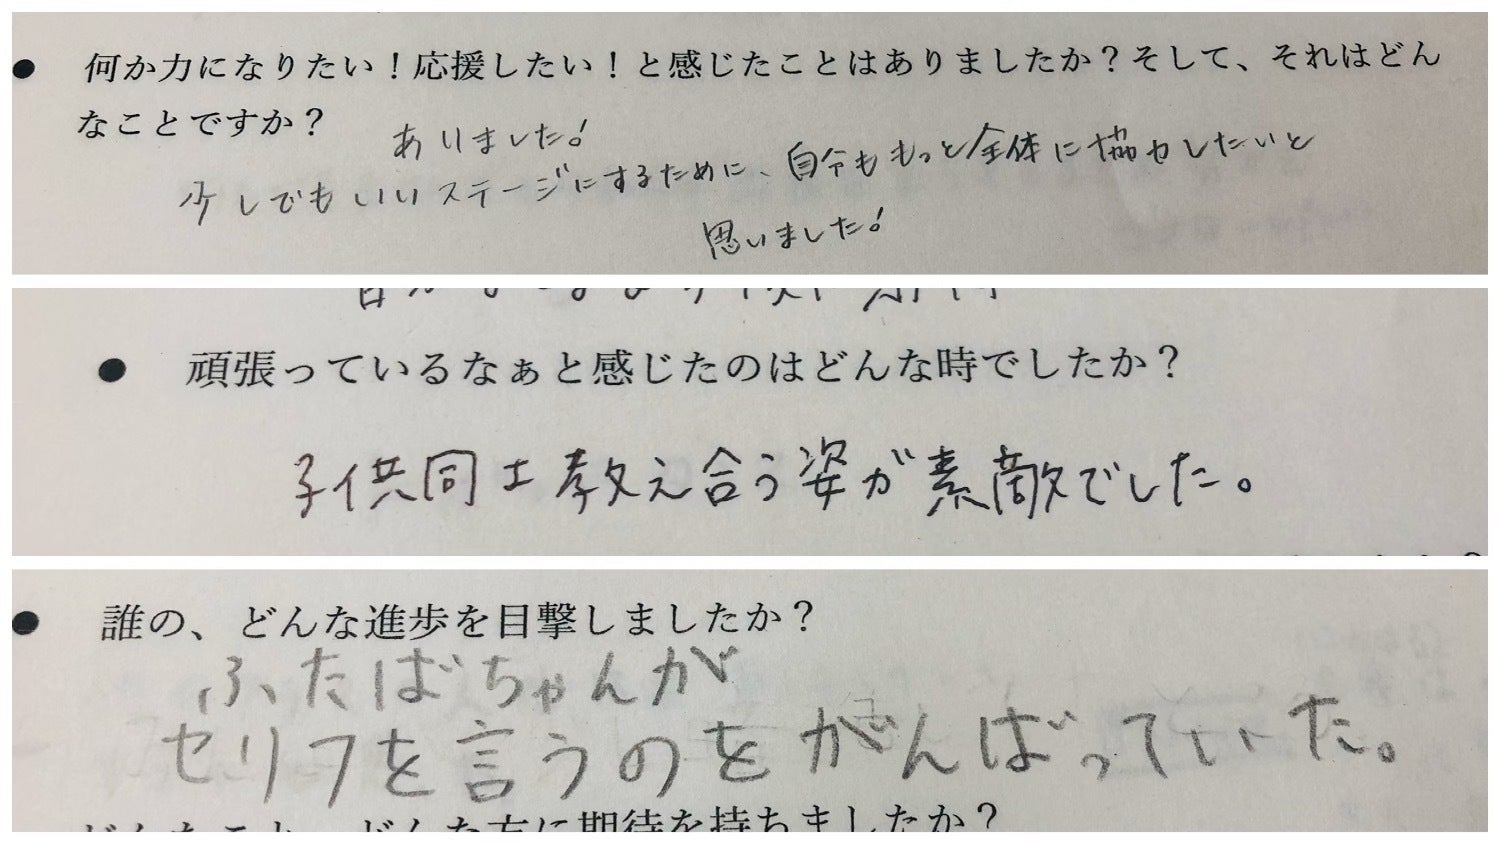 ● 何か力になりたい！応援したい！と感じたことはありましたか？そして、それはどん
なことですか？
ありました!
少しでもいいステージにするために、自分ももっと全体に協力したいと
思いました!
● 頑張っているなぁと感じたのはどんな時でしたか？
子供同士教え合う姿が素敵でした。
● 誰の、どんな進歩を目撃しましたか？
ふたばちゃんが
セリフを言うのをがんばっていた。
どんなこと、どんな方に期待を持ちましたか？